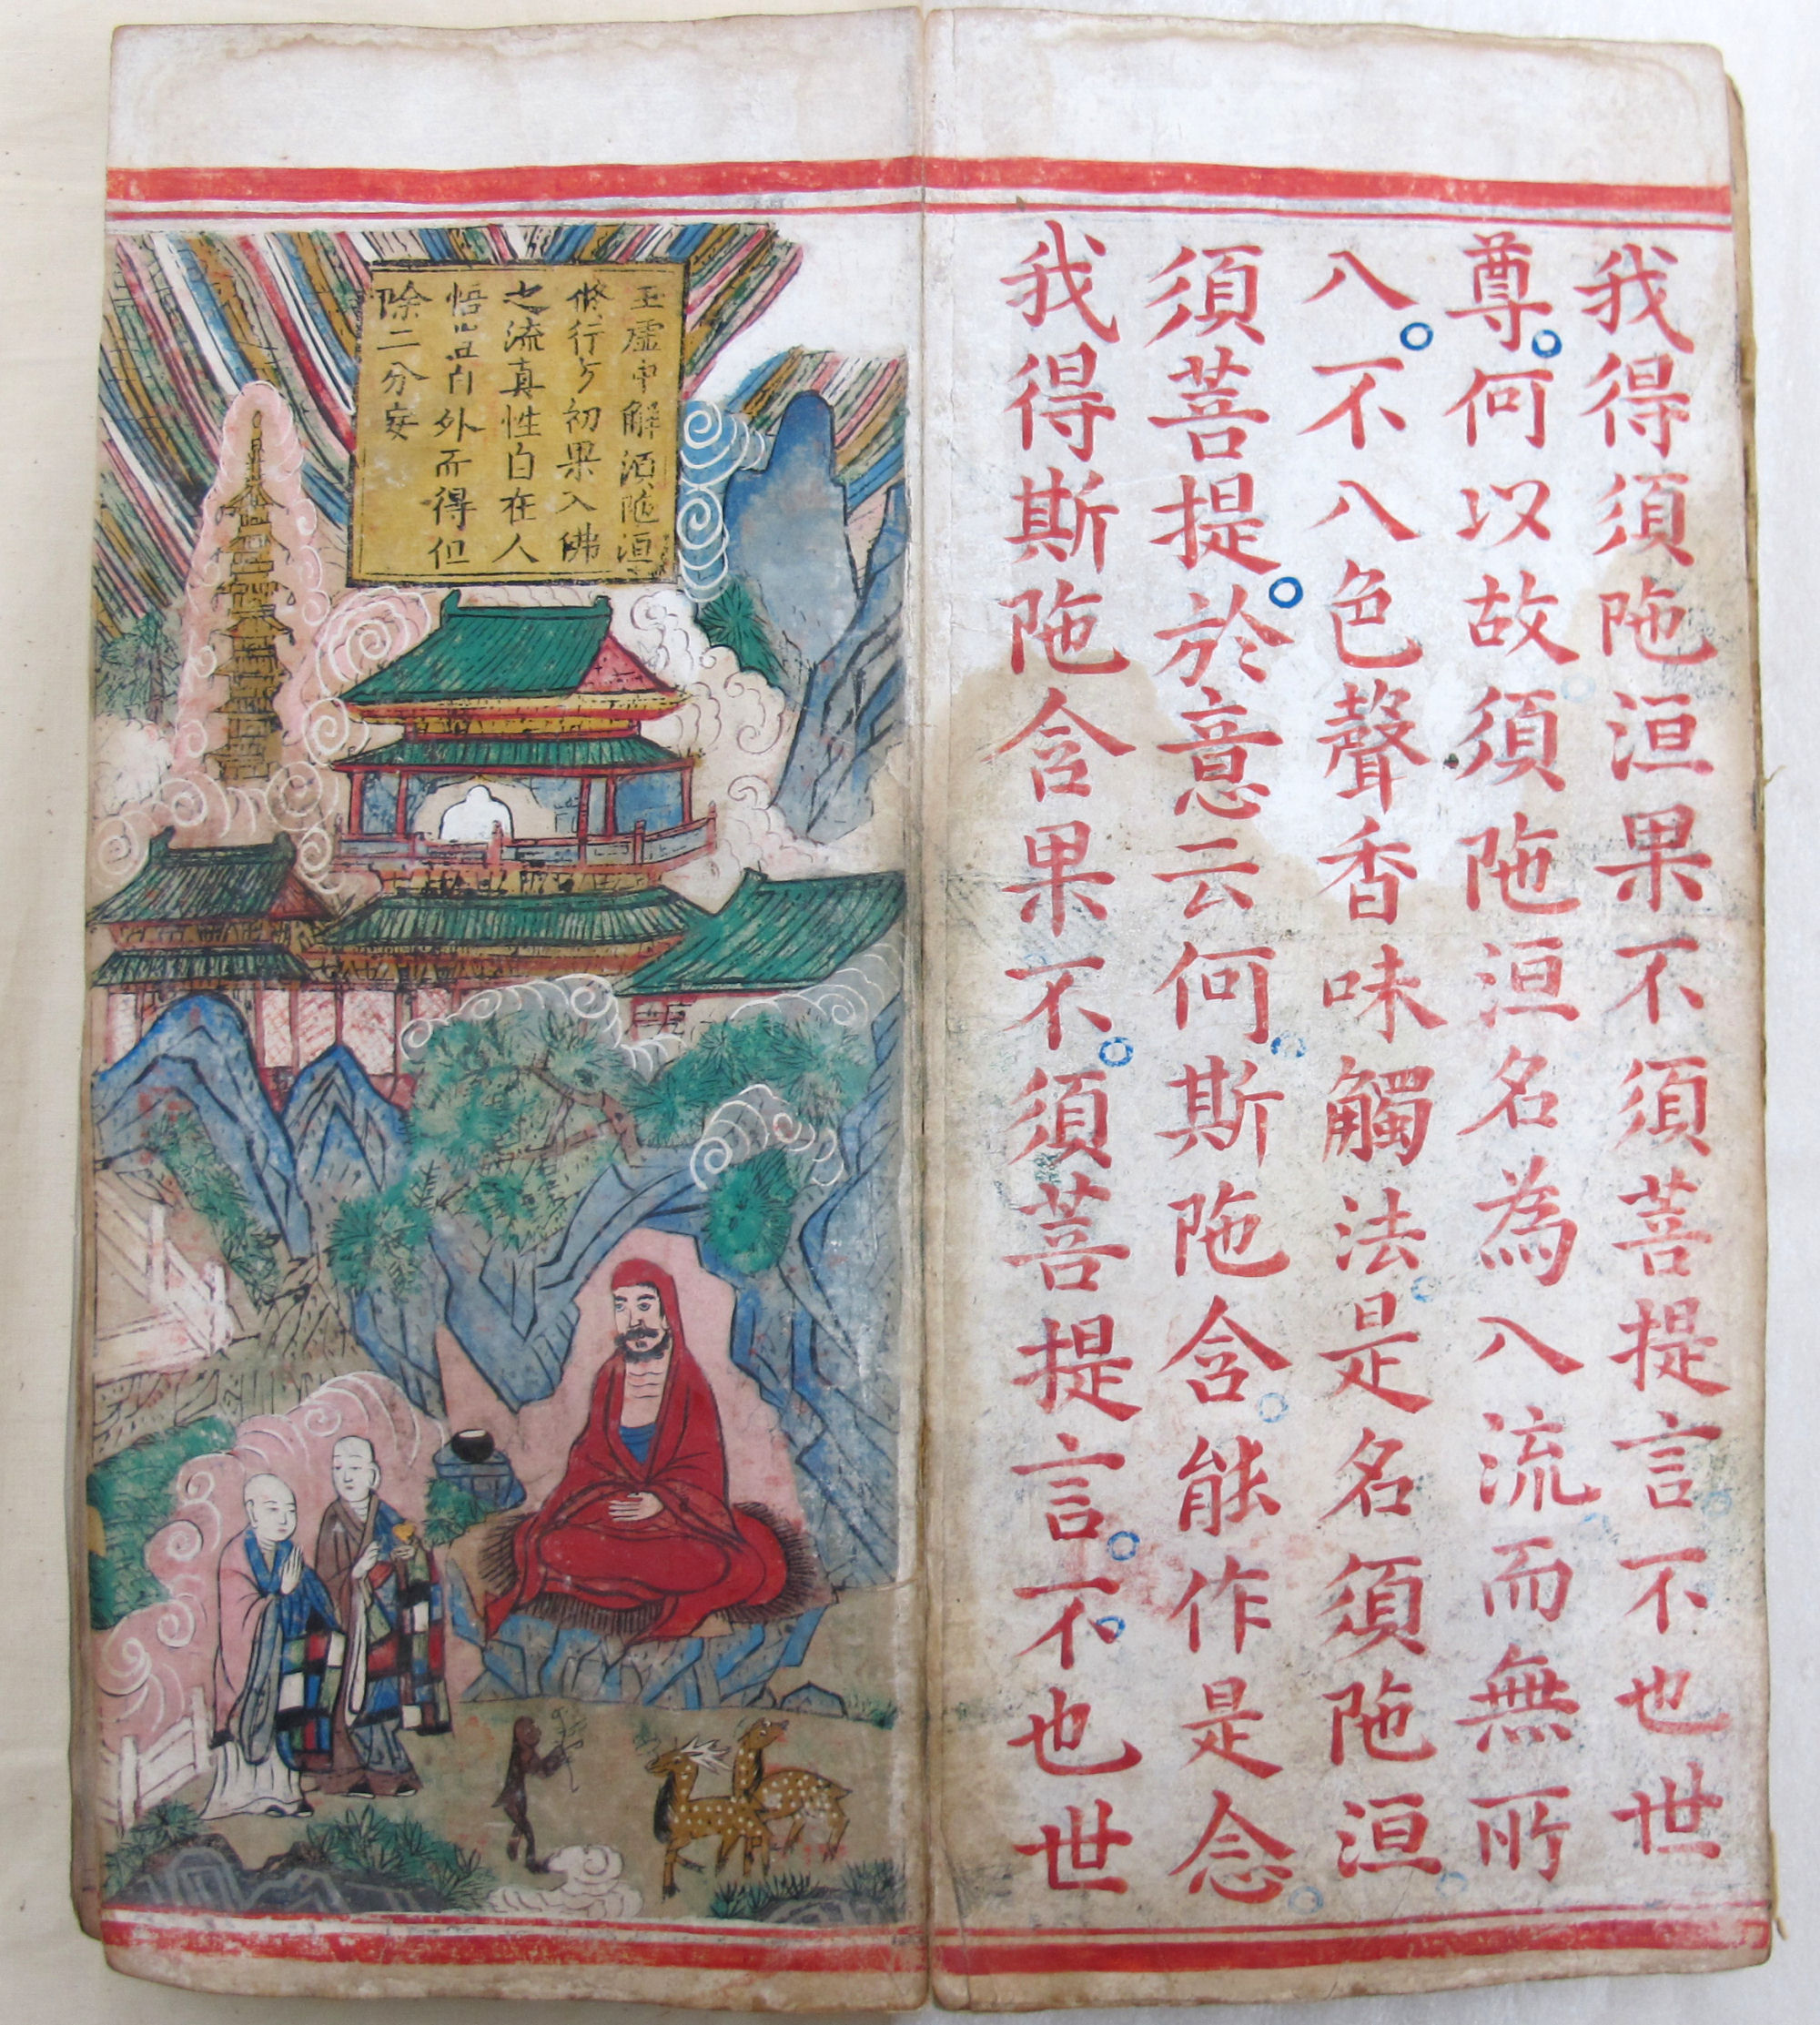 我得須陁洹果不須菩提言。不也世
尊。何以故。須陁洹名為入流。而無所
入。不入色聲香味觸法。是名須陁洹。
須菩提。於意云何。斯陁含。能作是念。
我得斯陁含果不。須菩提言。不。也世
王虛中解須陁洹
修行初果入佛
之流真性自在人
悟豈自外而得但
除二分妄